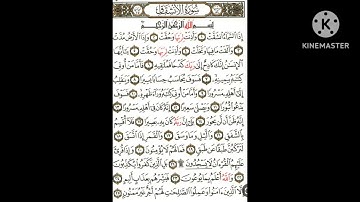 سُورَةُ الانشِقَاقِ
بِسْمِ اللَّهِ الرَّحْمَٰنِ الرَّحِيمِ
إِذَا السَّمَاءُ انشَقَّتْ ۝ وَأَذِنَتْ لِرَبِّهَا وَحُقَّتْ ۝ وَإِذَا الْأَرْضُ مُدَّتْ
۝ وَأَلْقَتْ مَا فِيهَا وَتَخَلَّتْ ۝ وَأَذِنَتْ لِرَبِّهَا وَحُقَّتْ ۝ يَٰأَيُّهَا
الْإِنسَٰنُ إِنَّكَ كَادِحٌ إِلَىٰ رَبِّكَ كَدْحًا فَمُلَٰقِيهِ ۝ فَأَمَّا مَنْ أُوتِيَ
كِتَٰبَهُ بِيَمِينِهِ ۝ فَسَوْفَ يُحَاسَبُ حِسَابًا يَسِيرًا ۝ وَيَنقَلِبُ
إِلَىٰ أَهْلِهِ مَسْرُورًا ۝ وَأَمَّا مَنْ أُوتِيَ كِتَٰبَهُ وَرَاءَ ظَهْرِهِ ۝ فَسَوْفَ
يَدْعُوا ثُبُورًا ۝ وَيَصْلَىٰ سَعِيرًا ۝ إِنَّهُ كَانَ فِي أَهْلِهِ مَسْرُورًا ۝
إِنَّهُ ظَنَّ أَن لَّن يَحُورَ ۝ بَلَىٰ إِنَّ رَبَّهُ كَانَ بِهِ بَصِيرًا ۝ فَلَا أُقْسِمُ
بِالشَّفَقِ ۝ وَاللَّيْلِ وَمَا وَسَقَ ۝ وَالْقَمَرِ إِذَا اتَّسَقَ ۝
لَتَرْكَبُنَّ طَبَقًا عَن طَبَقٍ ۝ فَمَا لَهُمْ لَا يُؤْمِنُونَ ۝ وَإِذَا قُرِئَ
عَلَيْهِمُ الْقُرْءَانُ لَا يَسْجُدُونَ ۩ ۝ بَلِ الَّذِينَ كَفَرُوا يُكَذِّبُونَ
۝ وَاللَّهُ أَعْلَمُ بِمَا يُوعُونَ ۝ فَبَشِّرْهُم بِعَذَابٍ أَلِيمٍ ۝
إِلَّا الَّذِينَ ءَامَنُوا وَعَمِلُوا الصَّٰلِحَٰتِ لَهُمْ أَجْرٌ غَيْرُ مَمْنُونٍ ۝
Made with
KINEMASTER